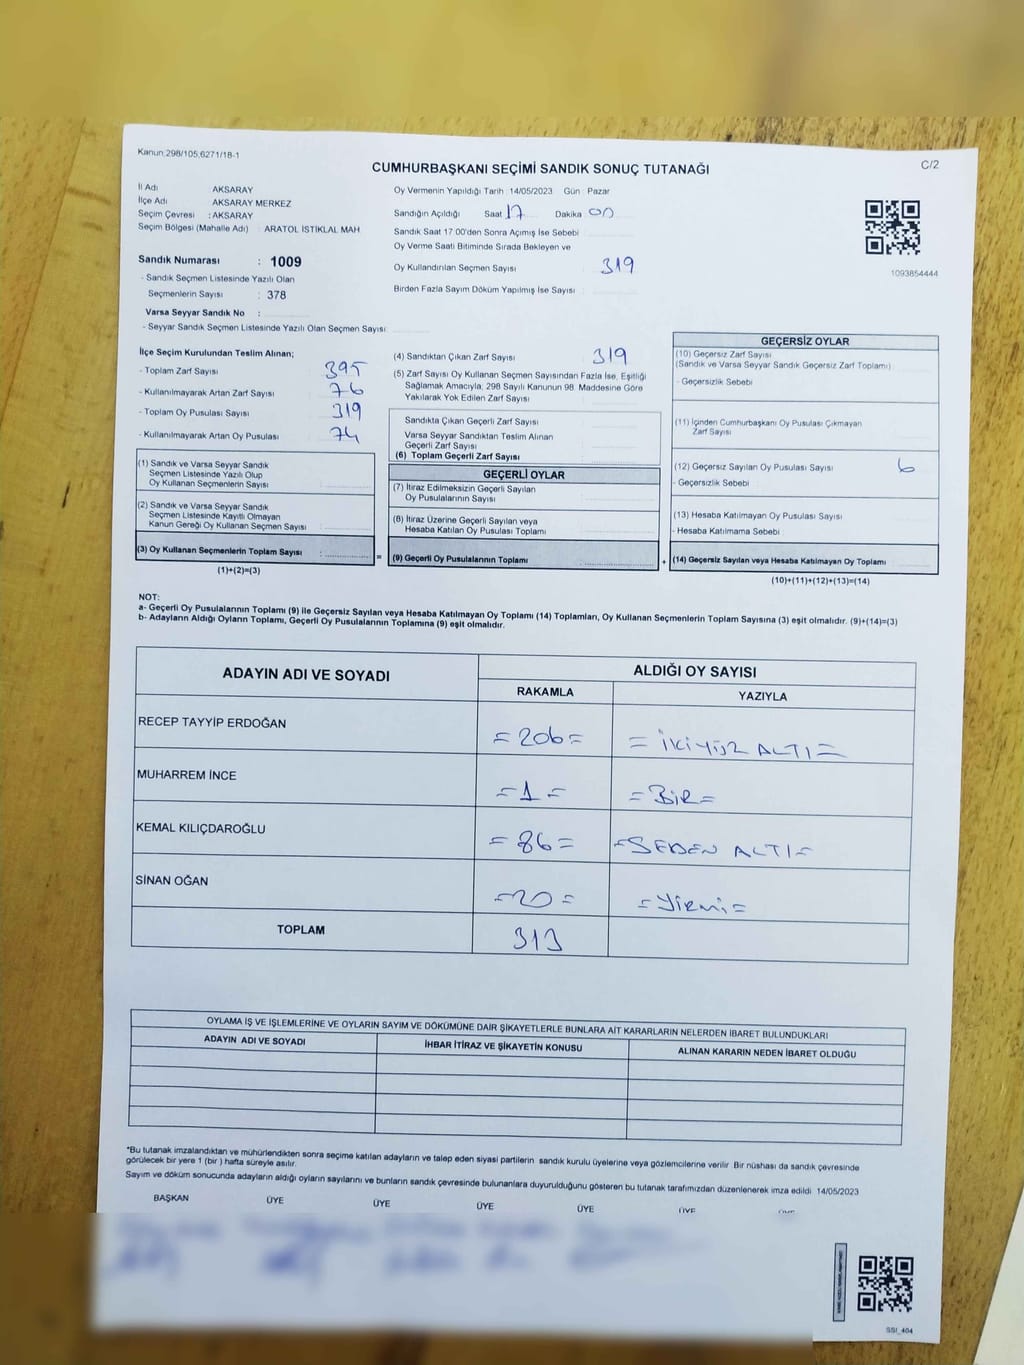 Kanun 298/105,6271/18-1
CUMHURBAŞKANI SEÇİMİ SANDIK SONUÇ TUTANAĞI
C/2
İl Adı AKSARAY
İlçe Adı AKSARAY MERKEZ
Seçim Çevresi : AKSARAY
Seçim Bölgesi (Mahalle Adı) : ARATOL İSTİKLAL MAH
Sandık Numarası : 1009
- Sandık Seçmen Listesinde Yazılı Olan
Seçmenlerin Sayısı : 378
Varsa Seyyar Sandık No :
- Seyyar Sandık Seçmen Listesinde Yazılı Olan Seçmen Sayısı:
Oy Vermenin Yapıldığı Tarih : 14/05/2023 Gün : Pazar
Sandığın Açıldığı Saat 17 Dakika 00
Sandık Saat 17 00'den Sonra Açımış İse Sebebi
Oy Verme Saati Bitiminde Sırada Bekleyen ve
Oy Kullandırılan Seçmen Sayısı 319
Birden Fazla Sayım Döküm Yapılmış İse Sayısı
1093854444
İlçe Seçim Kurulundan Teslim Alınan;
- Toplam Zarf Sayısı 395
- Kullanılmayarak Artan Zarf Sayısı 76
- Toplam Oy Pusulası Sayısı 319
- Kullanılmayarak Artan Oy Pusulası 74
(1) Sandık ve Varsa Seyyar Sandık
Seçmen Listesinde Yazılı Olup
Oy Kullanan Seçmenlerin Sayısı
(2) Sandık ve Varsa Seyyar Sandık
Seçmen Listesinde Kayıtlı Olmayan
Kanun Gereği Oy Kullanan Seçmen Sayısı
(3) Oy Kullanan Seçmenlerin Toplam Sayısı :
(1)+(2)=(3)
=
(4) Sandıktan Çıkan Zarf Sayısı 319
(5) Zarf Sayısı Oy Kullanan Seçmen Sayısından Fazla İse, Eşitliği
Sağlamak Amacıyla; 298 Sayılı Kanunun 98. Maddesine Göre
Yakılarak Yok Edilen Zarf Sayısı
Sandıkta Çıkan Geçerli Zarf Sayısı
Varsa Seyyar Sandıktan Teslim Alınan
Geçerli Zarf Sayısı
(6) Toplam Geçerli Zarf Sayısı
GEÇERLİ OYLAR
(7) İtiraz Edilmeksizin Geçerli Sayılan
Oy Pusulalarının Sayısı
(8) İtiraz Üzerine Geçerli Sayılan veya
Hesaba Katılan Oy Pusulası Toplamı
(9) Geçerli Oy Pusulalarının Toplamı :
+
GEÇERSİZ OYLAR
(10) Geçersiz Zarf Sayısı
(Sandık ve Varsa Seyyar Sandık Geçersiz Zarf Toplamı)
- Geçersizlik Sebebi
(11) İçinden Cumhurbaşkanı Oy Pusulası Çıkmayan
Zarf Sayısı
(12) Geçersiz Sayılan Oy Pusulası Sayısı 6
- Geçersizlik Sebebi
(13) Hesaba Katılmayan Oy Pusulası Sayısı
- Hesaba Katılmama Sebebi
(14) Geçersiz Sayılan veya Hesaba Katılmayan Oy Toplamı
(10)+(11)+(12)+(13)=(14)
NOT:
a- Geçerli Oy Pusulalarının Toplamı (9) ile Geçersiz Sayılan veya Hesaba Katılmayan Oy Toplamı (14) Toplamları, Oy Kullanan Seçmenlerin Toplam Sayısına (3) eşit olmalıdır. (9)+(14)=(3)
b- Adayların Aldığı Oyların Toplamı, Geçerli Oy Pusulalarının Toplamına (9) eşit olmalıdır.
ADAYIN ADI VE SOYADI ALDIĞI OY SAYISI
RAKAMLA YAZIYLA
RECEP TAYYİP ERDOĞAN =206= =İKİYÜZ ALTI=
MUHARREM İNCE =1= =BİR=
KEMAL KILIÇDAROĞLU =86= =SEBEN ALTI=
SİNAN OĞAN =20= =Yirmi=
TOPLAM 313
OYLAMA İŞ VE İŞLEMLERİNE VE OYLARIN SAYIM VE DÖKÜMÜNE DAİR ŞİKAYETLERLE BUNLARA AİT KARARLARIN NELERDEN İBARET BULUNDUKLARI
ADAYIN ADI VE SOYADI İHBAR İTİRAZ VE ŞİKAYETİN KONUSU ALINAN KARARIN NEDEN İBARET OLDUĞU
*Bu tutanak imzalandıktan ve mühürlendikten sonra seçime katılan adayların ve talep eden siyasi partilerin sandık kurulu üyelerine veya gözlemcilerine verilir. Bir nüshası da sandık çevresinde
görülecek bir yere 1 (bir) hafta süreyle asılır.
Sayım ve döküm sonucunda adayların aldığı oyların sayılarını ve bunların sandık çevresinde bulunanlara duyurulduğunu gösteren bu tutanak tarafımızdan düzenlenerek imza edildi 14/05/2023
BAŞKAN ÜYE ÜYE ÜYE ÜYE ÜYE
SSİ_404